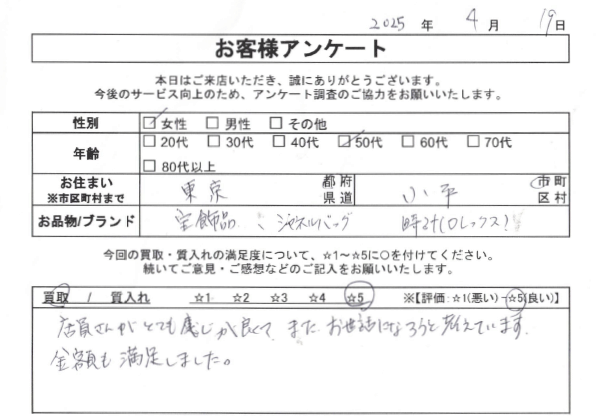 2025 年 4 月 19 日
お客様アンケート
本日はご来店いただき、誠にありがとうございます。
今後のサービス向上のため、アンケート調査のご協力をお願いいたします。
性別 ☑ 女性 □ 男性 □ その他
年齢 □ 20代 □ 30代 □ 40代 ☑ 50代 □ 60代 □ 70代
□ 80代以上
お住まい ※市区町村まで 東京 都府県道 小平 市町区村
お品物/ブランド 宝飾品、シャネルバッグ 時計(ロレックス)
今回の買取・質入れの満足度について、☆1～☆5に○を付けてください。
続いてご意見・ご感想などのご記入をお願いいたします。
買取 / 質入れ ☆1 ☆2 ☆3 ☆4 ☆5 ※【評価:☆1(悪い)-☆5(良い)】
店員さんがとても感じが良くて、また、お世話になろうと考えています。
金額も満足しました。